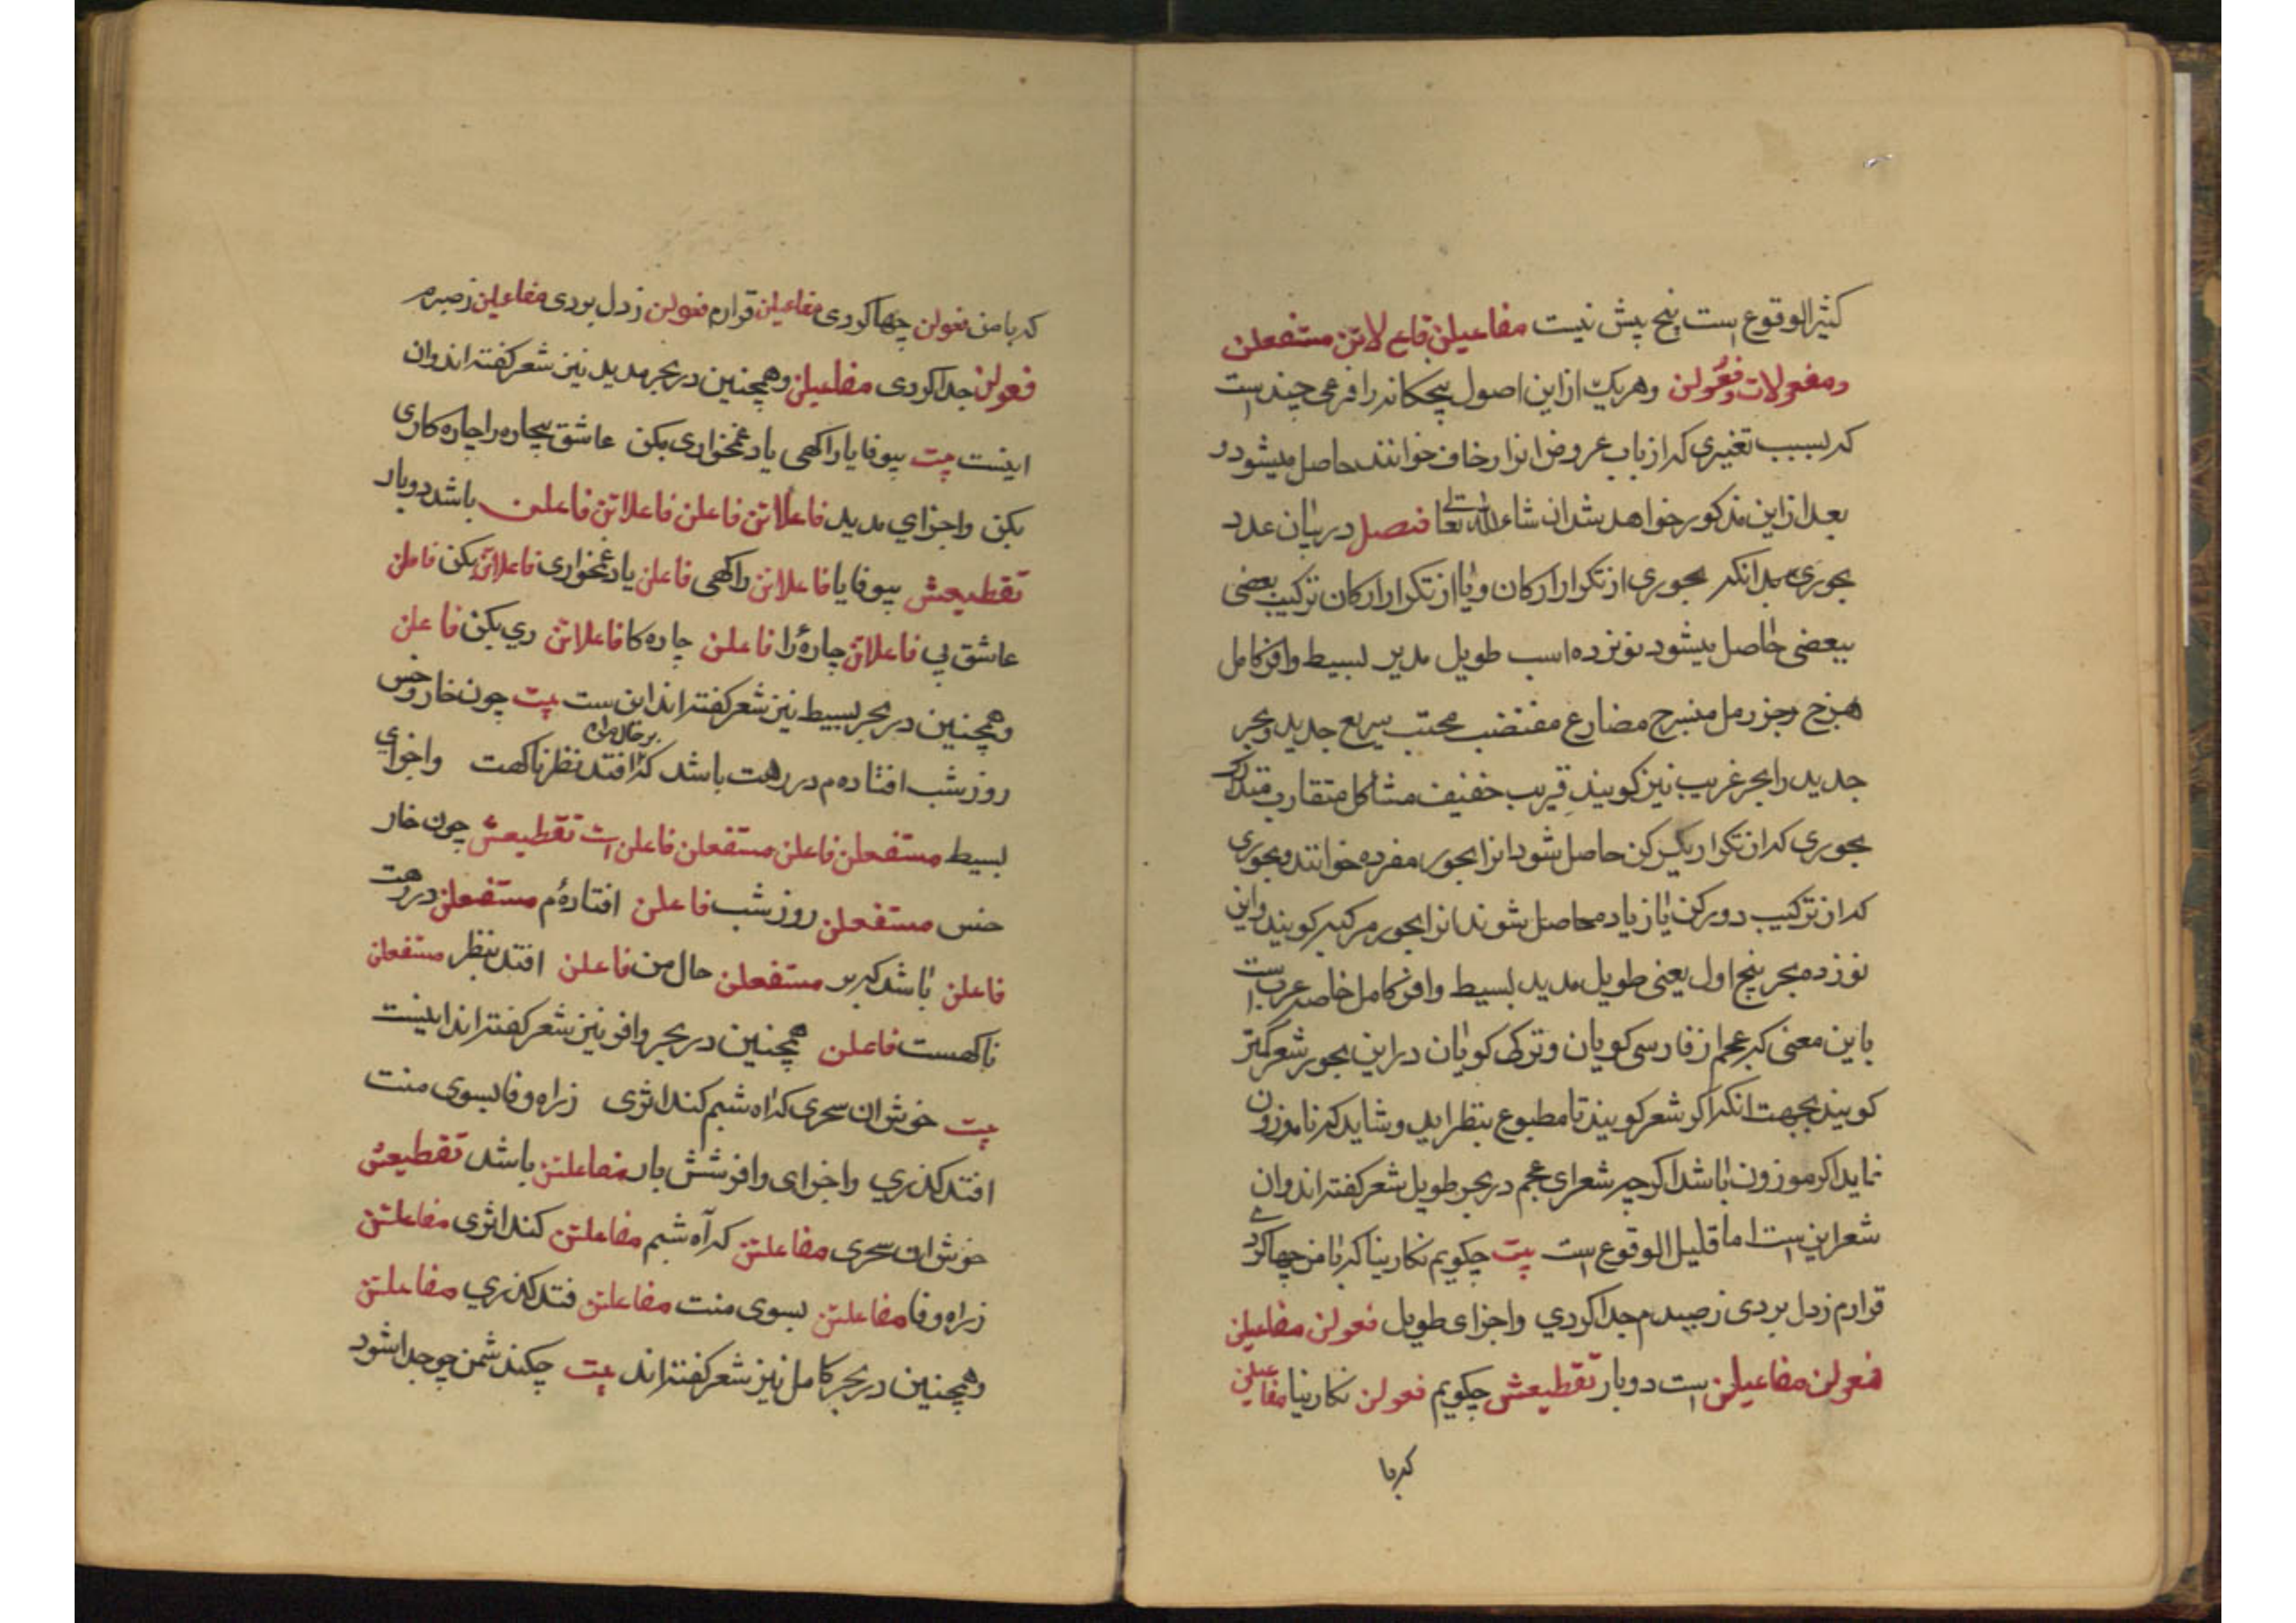 کثیر الوقوع است پنج پیش نیست مفاعیلن فاع لاتن مستفعلن
و مفعولات و فعولن و هر یک از این اصول پنجکانه را فرعی چند است
که بسبب تغیری که از باب عروض انرا زحاف خوانند حاصل میشود و
بعد از این مذکور خواهد شد ان شاء الله تعالی فصل در بیان عدد
بحوری بدانکه بحوری از تکرار ارکان و یا از تکرار ارکان ترکیب بعضی
ببعضی حاصل میشود نوزده است طویل مدید بسیط وافر کامل
هزج رجز رمل منسرح مضارع مقتضب مجتث سریع جدید و بحر
جدید را بحر غریب نیز کویند قریب خفیف مشاکل متقارب متدارک
بحوری که از تکرار یک رکن حاصل شود انرا بحور مفرده خوانند و بحوری
که از ترکیب دو رکن یا زیاده حاصل شوند انرا بحور مرکبه کویند و این
نوزده بحر پنج اول یعنی طویل مدید بسیط وافر کامل خاصه عربست
باین معنی که عجم از فارسی کویان و ترکی کویان در این بحور شعر کمتر
کویند بجهت انکه اکر شعر کویند نا مطبوع بنظر اید و شاید که ناموزون
نماید اکر موزون باشد اکرچه شعرای عجم در بحر طویل شعر کفته اند و ان
شعر این است اما قلیل الوقوع است بیت چکویم نکارینا که با من چها کردی
قرارم ز دل بردی ز صبرم جدا کردی و اجزای طویل فعولن مفاعیلن
فعولن مفاعیلن است دوبار تقطیعش چکویم فعولن نکارینا مفاعیلن
که با
که با من فعولن چها کردی مفاعیلن قرارم فعولن ز دل بردی مفاعیلن ز صبرم
فعولن جدا کردی مفاعیلن و همچنین در بحر مدید نیز شعر کفته اند و ان
اینست بیت بیوفا یارا کهی یاد غمخواری بکن عاشق بیچاره را چاره کاری
بکن و اجزای مدید فاعلاتن فاعلن فاعلاتن فاعلن باشد دوبار
تقطیعش بیوفا یا فاعلاتن را کهی فاعلن یاد غمخواری فاعلاتن بکن فاعلن
عاشق بی فاعلاتن چارهٔ را فاعلن چاره کا فاعلاتن ری بکن فاعلن
و همچنین در بحر بسیط نیز شعر کفته اند این ست بیت چون خار و خس
روز شب افتاده م در رهت باشد که بر حال من افتد نظر ناکهت و اجزای
بسیط مستفعلن فاعلن مستفعلن فاعلن است تقطیعش چون خار
خس مستفعلن روز شب فاعلن افتادهٔ م مستفعلن در رهت
فاعلن باشد که بر مستفعلن حال من فاعلن افتد بنظر مستفعلن
ناکهست فاعلن همچنین در بحر وافر نیز شعر کفته اند اینست
بیت خوش ان سحری که اه شبم کند اثری ز راه وفا بسوی منت
افتد کذری و اجزای وافر شش بار مفاعلتن باشد تقطیعش
خوش ان سحری مفاعلتن که آه شبم مفاعلتن کند اثری مفاعلتن
ز راه وفا مفاعلتن بسوی منت مفاعلتن فتد کذری مفاعلتن
و همچنین در بحر کامل نیز شعر کفته اند بیت چکند شمن چو جدا شود